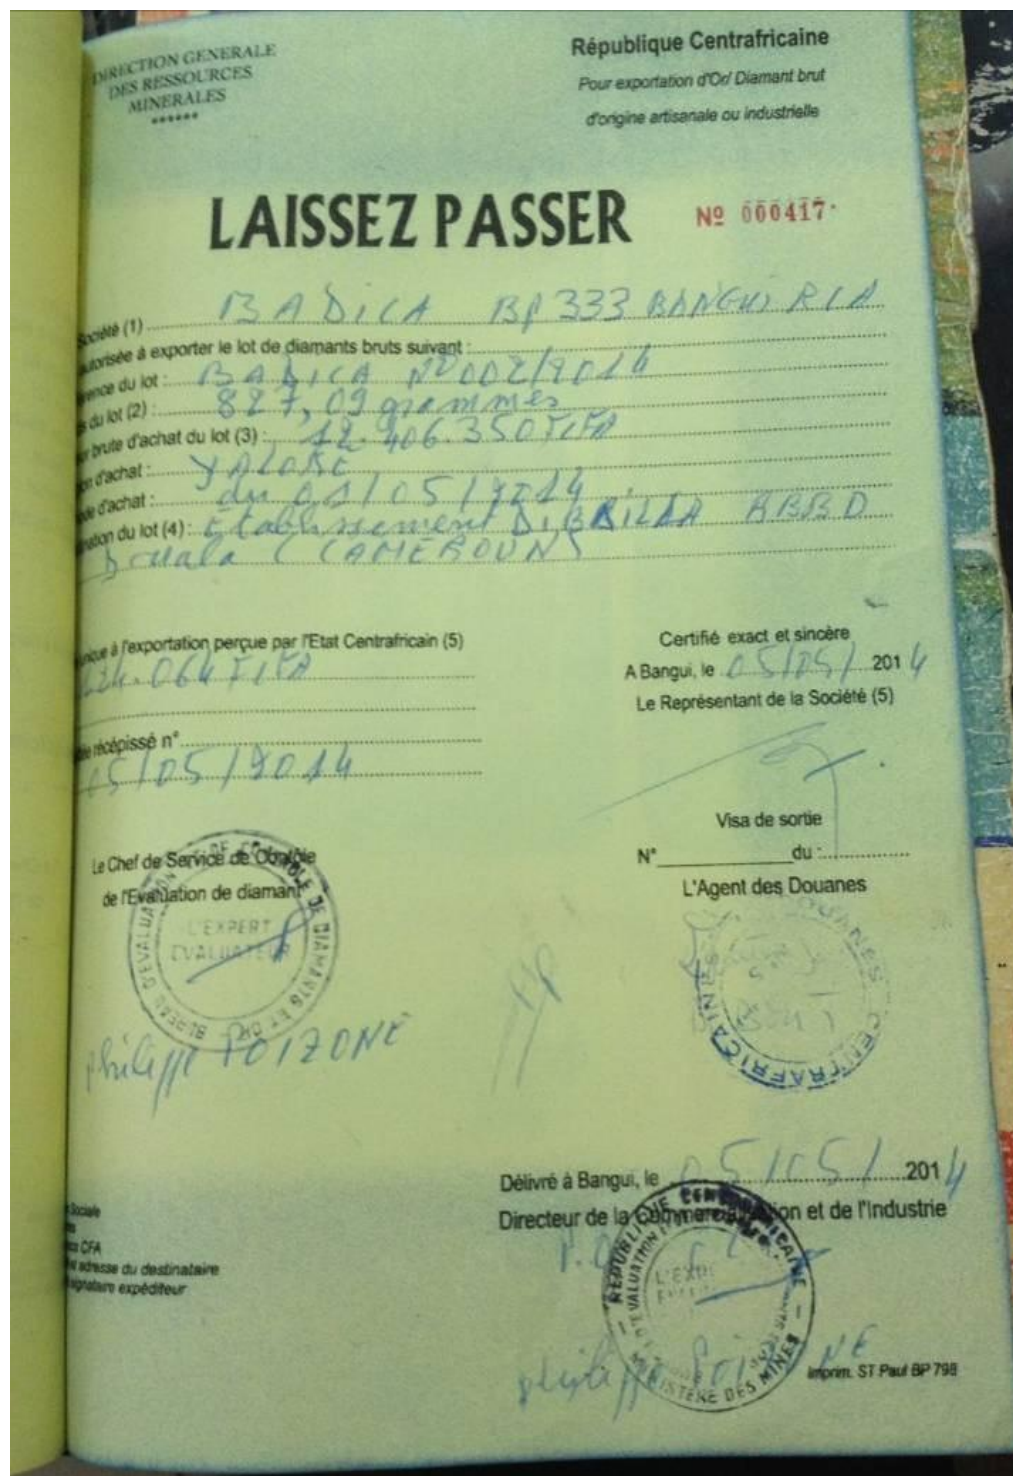 DIRECTION GENERALE
DES RESSOURCES
MINERALES
******
République Centrafricaine
Pour exportation d'Or/ Diamant brut
d'origine artisanale ou industrielle
LAISSEZ PASSER
Nº 000417
Société (1) BADICA BP 333 BANGUI RCA
autorisée à exporter le lot de diamants bruts suivant :
rence du lot : BADICA Nº 002/2014
du lot (2) : 827,09 grammes
brute d'achat du lot (3) : 12.406.350 FCFA
d'achat : YALOKE
d'achat : du 01/05/2014
nation du lot (4) : Etablissement DIBRILLA ABBO
Douala (CAMEROUN)
unique à l'exportation perçue par l'Etat Centrafricain (5)
.064 FCFA
récépissé n°
05/05/2014
Certifié exact et sincère
A Bangui, le 05/05/ 2014
Le Représentant de la Société (5)
Visa de sortie
N° du :
L'Agent des Douanes
DOUANES CENTRAFRICAINES
Le Chef de Service de Contrôle
de l'Evaluation de diamant
BUREAU D'EVALUATION DE CONTROLE DE DIAMANTS ET OR
L'EXPERT
EVALUATEUR
Philippe POIZONE
Délivré à Bangui, le 05/05/ 2014
Directeur de la Commercialisation et de l'Industrie
REPUBLIQUE CENTRAFRICAINE
MINISTERE DES MINES
Philippe POIZONE
Sociale
CFA
adresse du destinataire
signataire expéditeur
Imprim. ST Paul BP 798